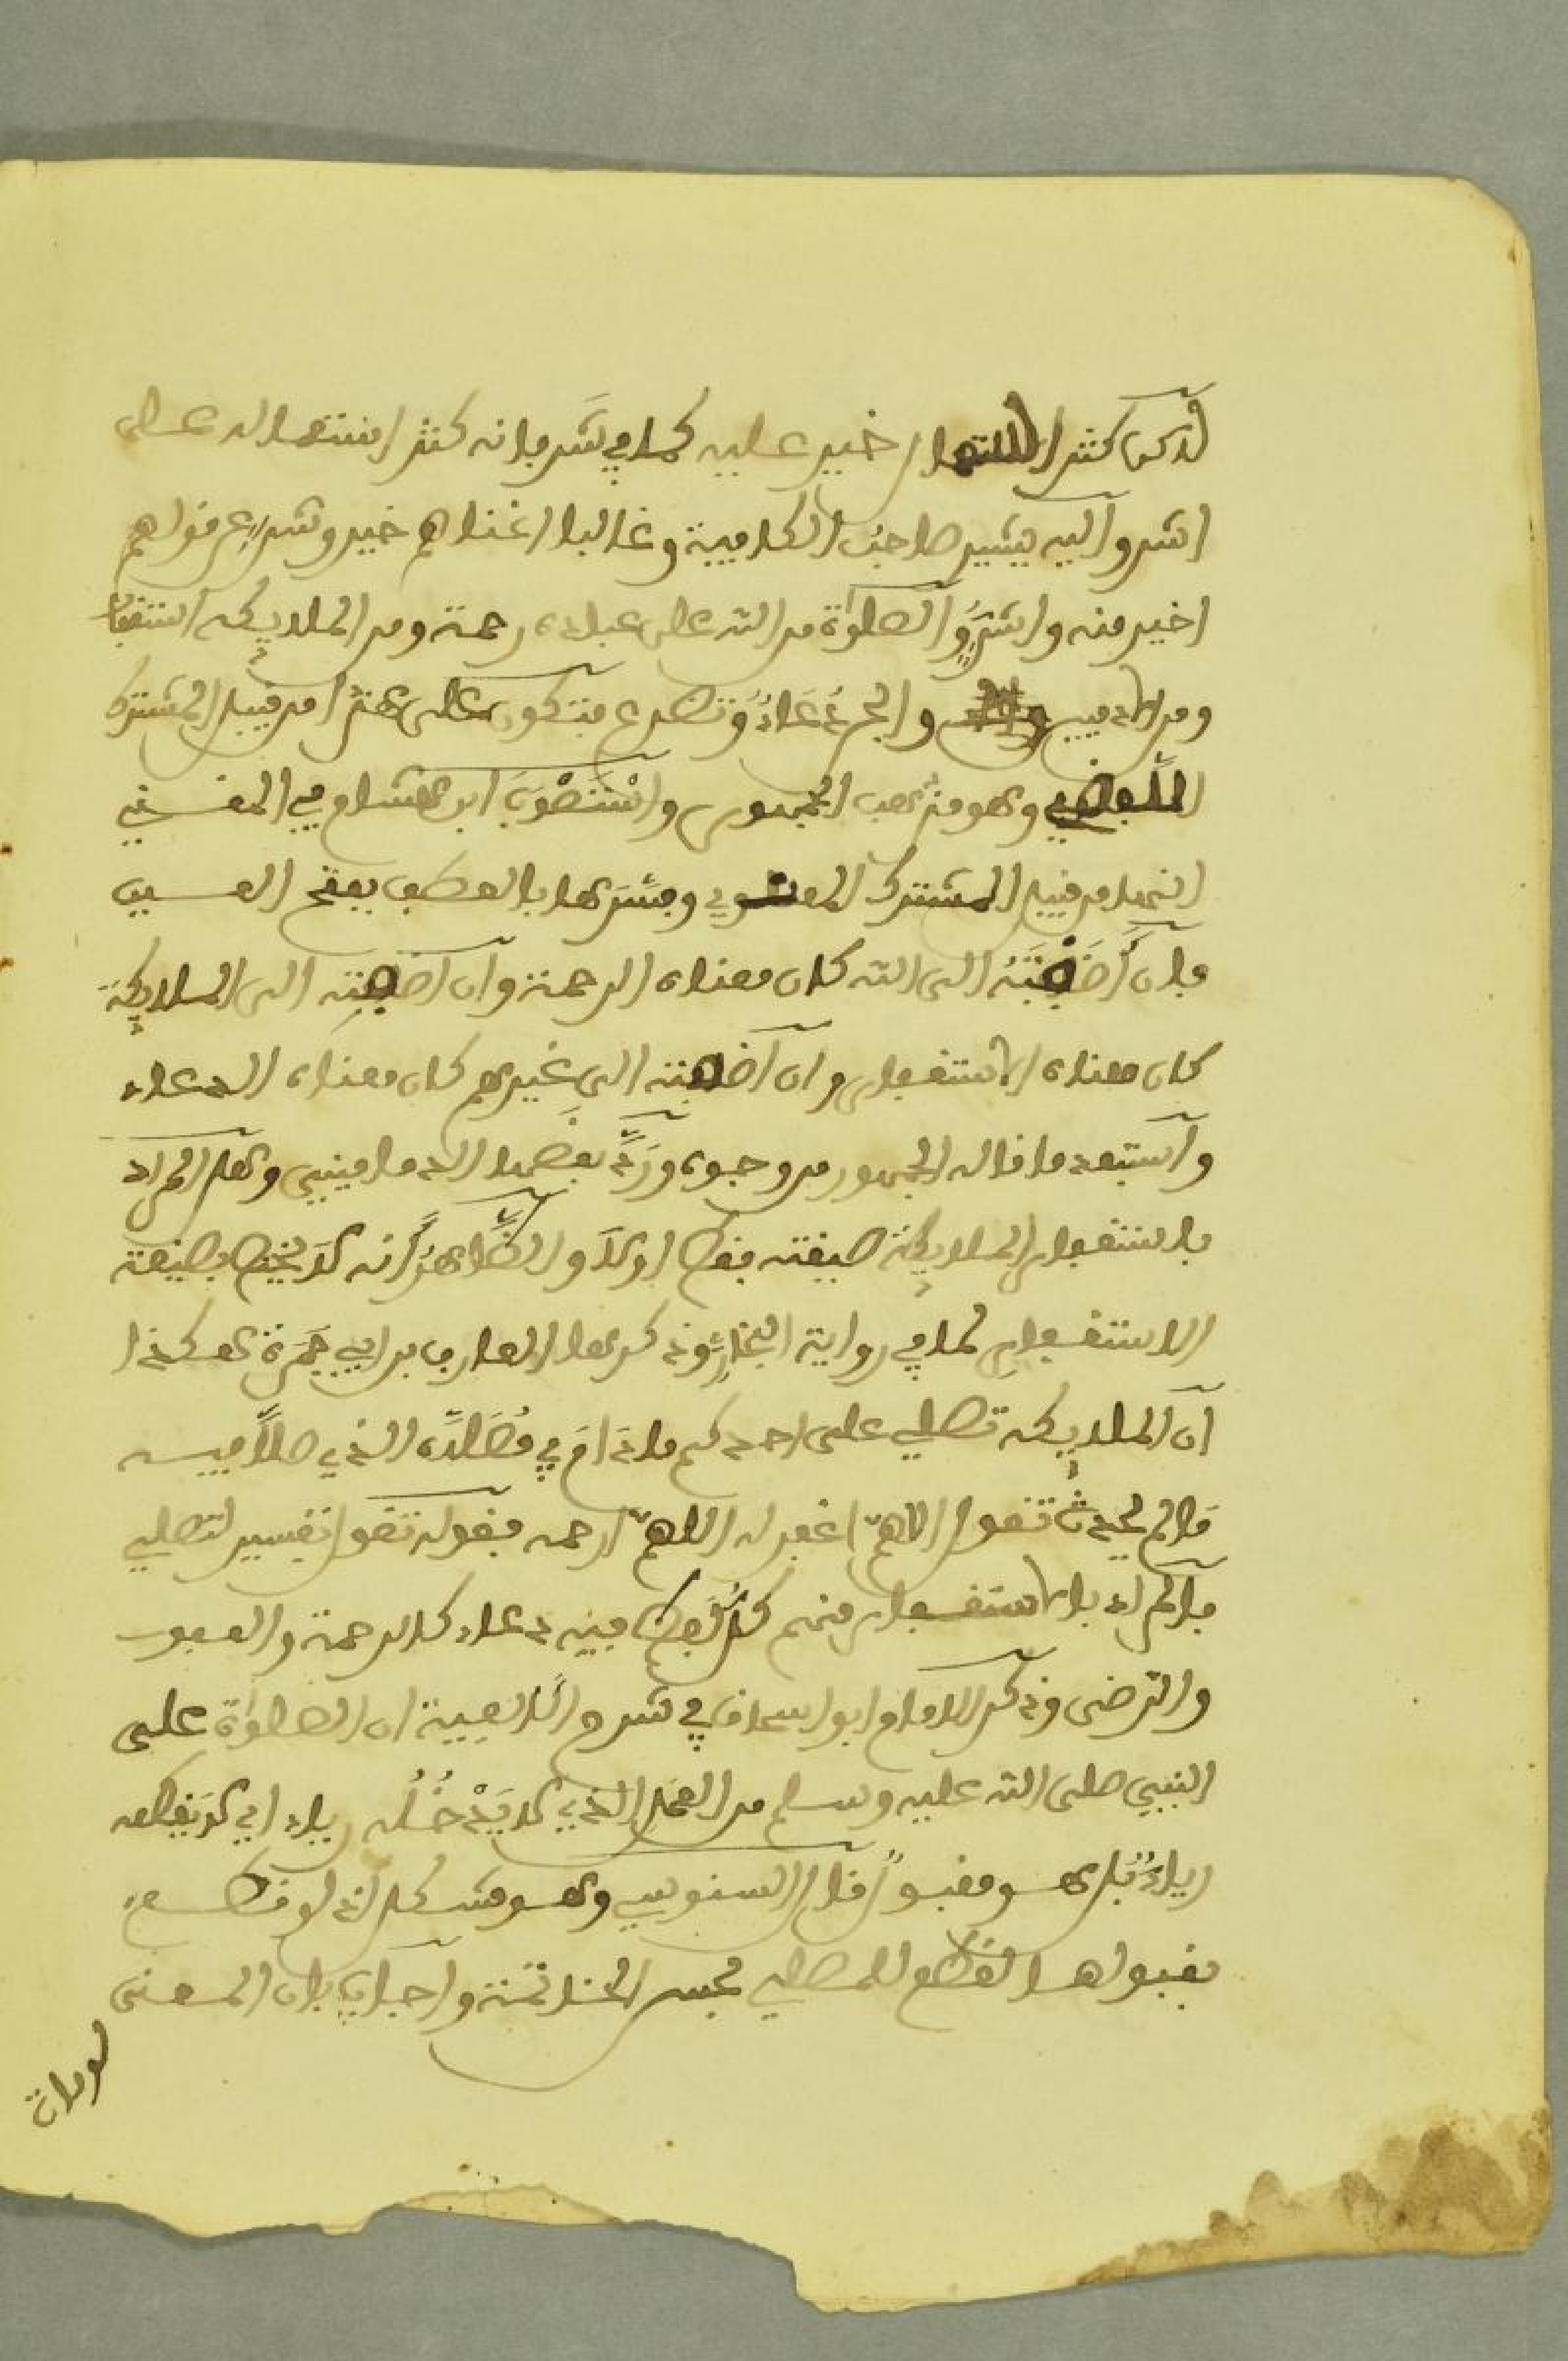 لاكن كثر استعمال خير عليه كما في شر فانه كثر استعماله على
اشر واليه يشير صاحب الكافية وغالبا اغناهم خير وشر عن قولهم
اخير منه واشر والصلوة من الله على عباده رحمة ومن الملايكة استغفار
ومن الادميين والجن دعاء وتضرع فتكون على هذا من قبيل المشترك
اللفظي وهو مذهب الجمهور واستصوب ابن هشام في المغني
انها من قبيل المشترك المعنوي وفسرها بالعطف بفتح العين
فان اضفته الى الله كان معناه الرحمة وان اضفته الى الملايكة
كان معناه الاستغفار وان اضفته الى غيرهم كان معناه الدعاء
واستبعد ما قاله الجمهور من وجوه ورد بعضها الدماميني وهل المراد
باستغفار الملايكة صيغته فقط اولا والظاهر انه لا يختص بصيغة
الاستغفار كما في رواية البخاري وذكرها العارف بن ابي جمرة هكذا
ان الملايكة تصلي على احدكم مادام في مصلاه الذي صلا فيه
مالم يحدث تقول اللهم اغفر له اللهم ارحمه فقوله تقول تفسير لتصلي
فالمراد بالاستغفار منهم كل لفظ فيه دعاء كالرحمة والعفو
والترضى وذكر الامام ابو اسحاق في شرح الالفية ان الصلوة على
النبي صلى الله عليه وسلم من العمل الذي لا يدخله رياء اي لا يقطعه
رياء بل هو مقبول قال السنوسي وهو مشكل اذ لو قطع
بقبولها لقطع للمصلي بحسن الخاتمة واجاب بان المعنى